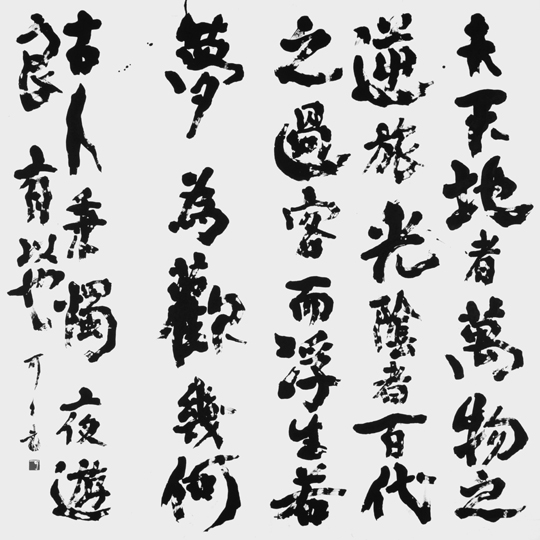 夫天地者萬物之
逆旅光陰者百代
之過客而浮生若
夢為歡幾何
古人秉燭夜遊
良有以也